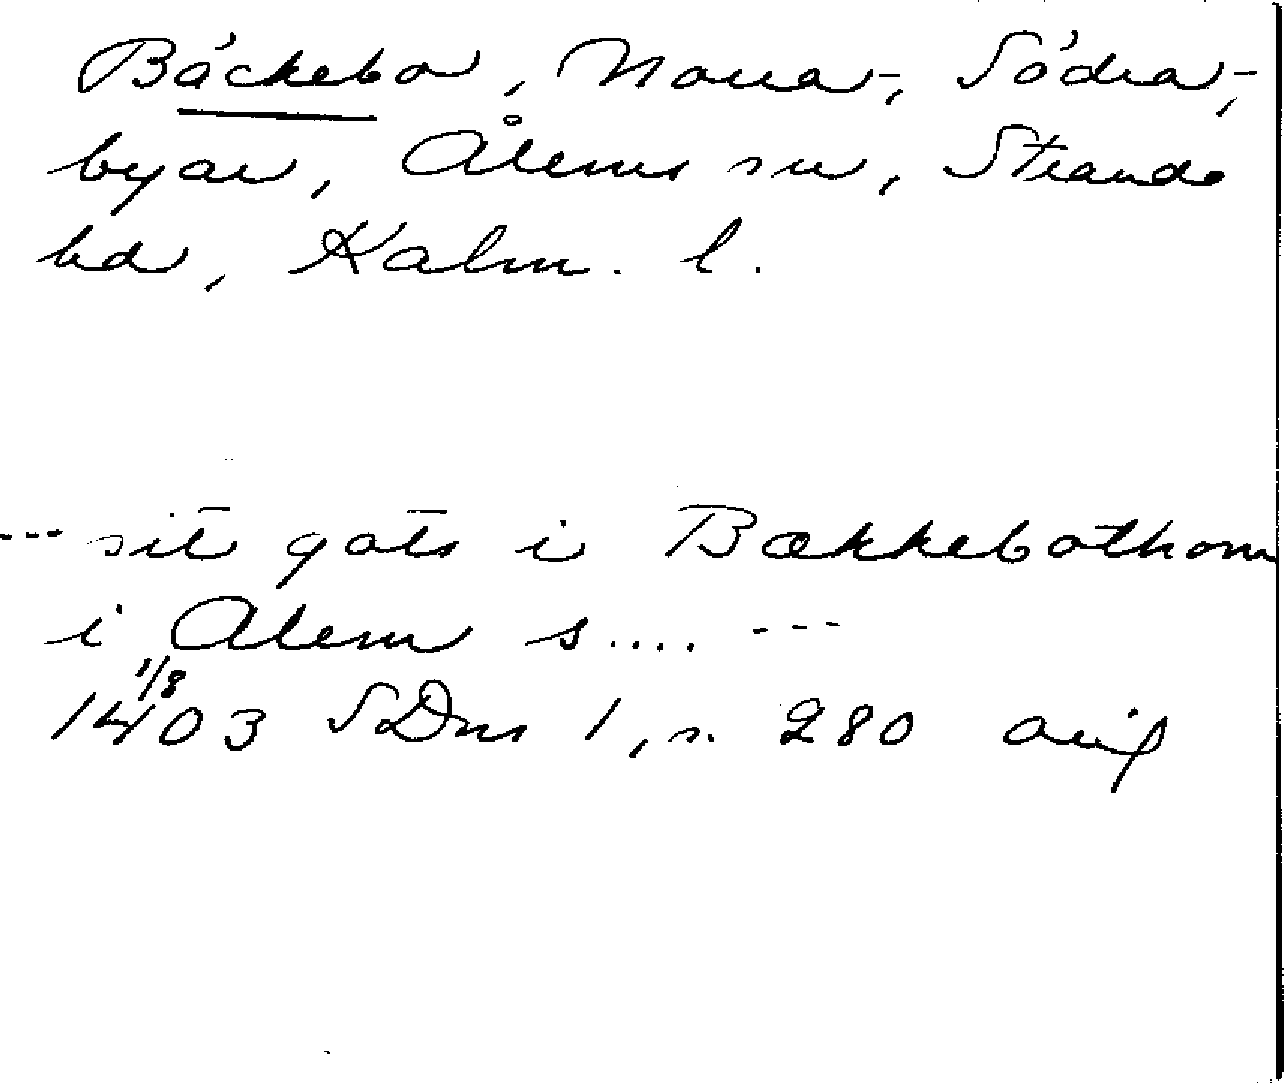 Bäckebo, Norra-, Södra-,
byar, Ålems sn, Strands
hd, Kalm. l.
--- sit̄ gots̄ i Bækkebothom
i Alem s.... ---
1/8
1403 SDns 1, s. 280 avs